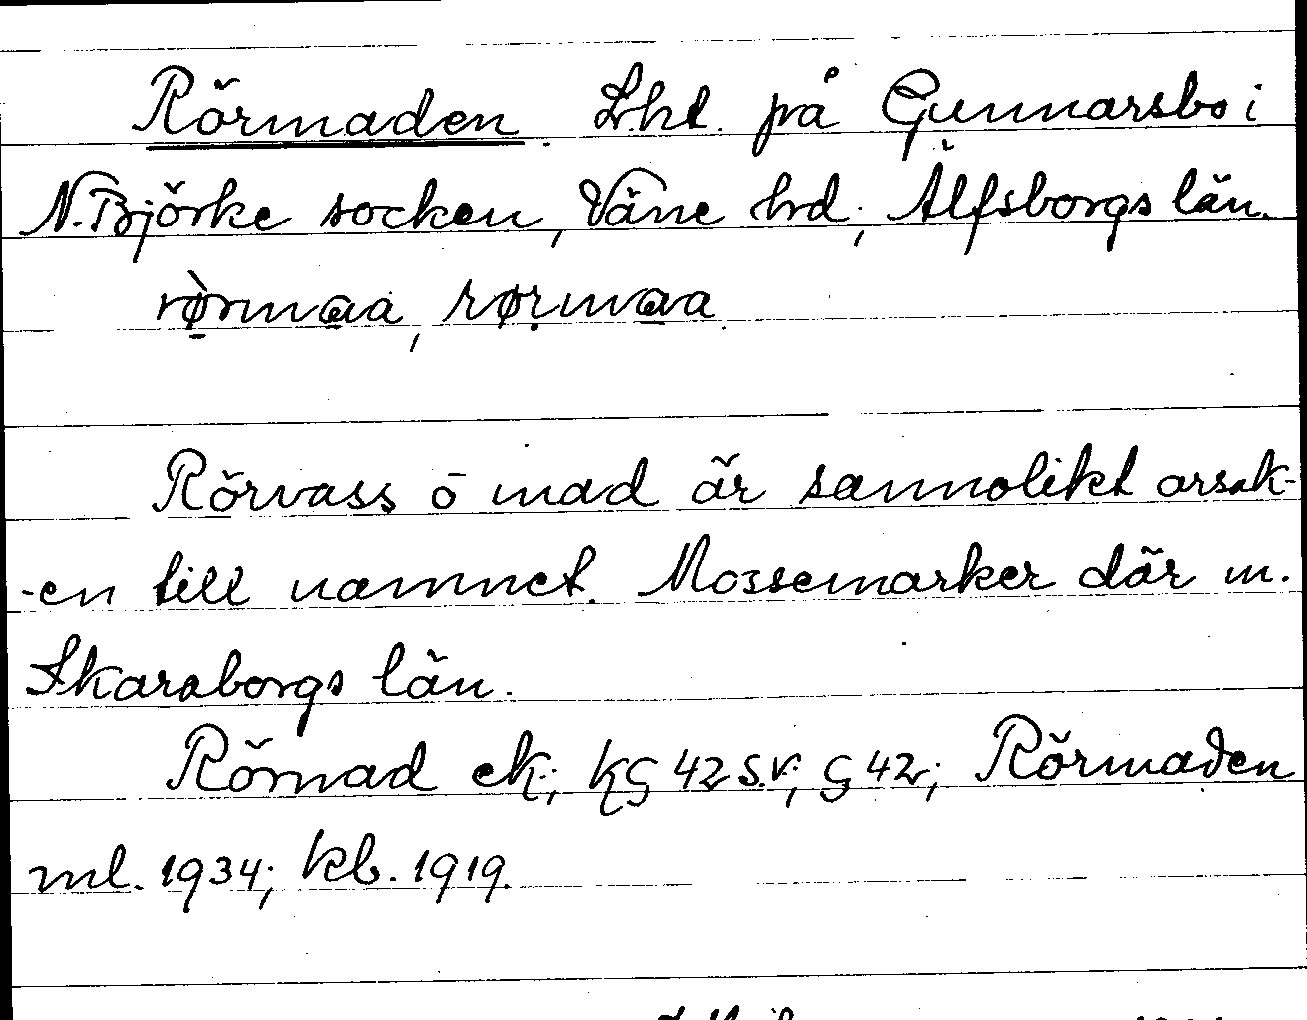 Rörmaden. Lht. på Gunnarsbo i
N. Björke socken, Väne hd; Älfsborgs län.
Rörvass o mad är sannolikt orsak-
-en till namnet. Mossemarker där m.
Skaraborgs län.
Römad ek; kG 42 s.v; G 42; Rörmaden
ml. 1934; kb. 1919.